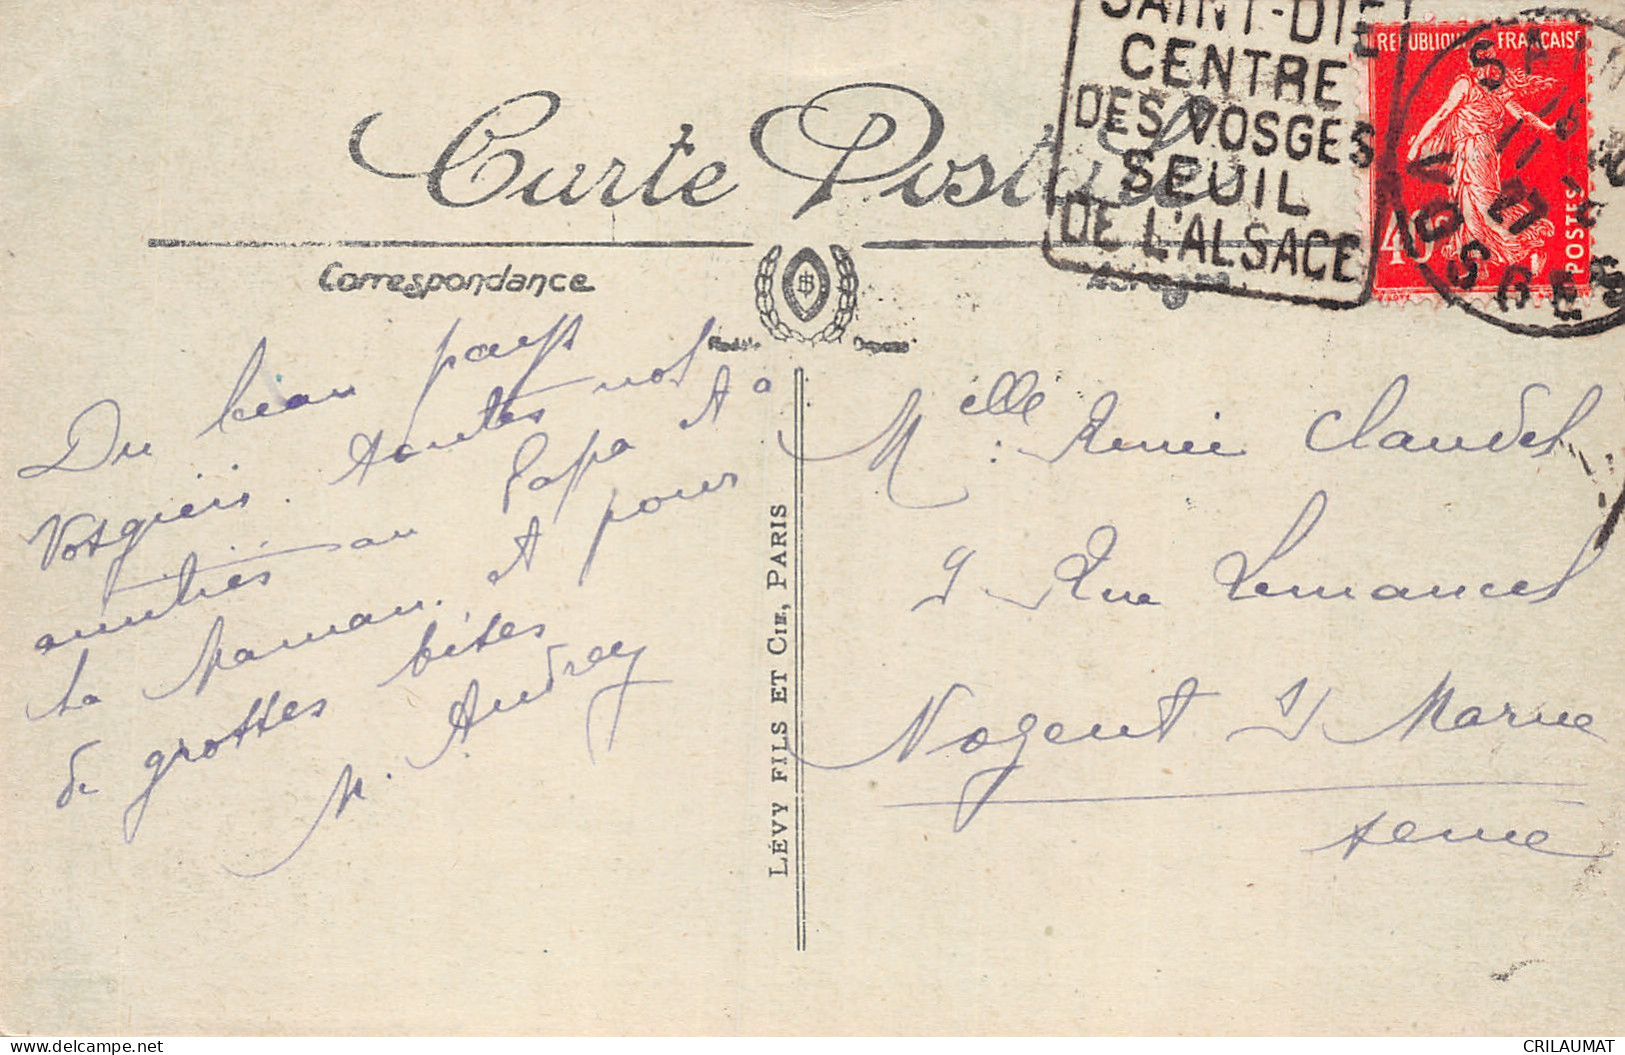 SAINT-DIÉ
CENTRE
DES VOSGES
SEUIL
DE L'ALSACE
REPUBLIQUE FRANÇAISE
POSTES
40
VOSGES
Carte Postale
Correspondance
Du beau pays
Vosgiens. toutes nos
amitiés au Papa et à
la Maman. et pour
de grosses bises
M. Audrey
LÉVY FILS ET CIE, PARIS
Melle : Renée Claudel
9 Rue Lemancel
Nogent s/ Marne
Seine
hippostcard.com